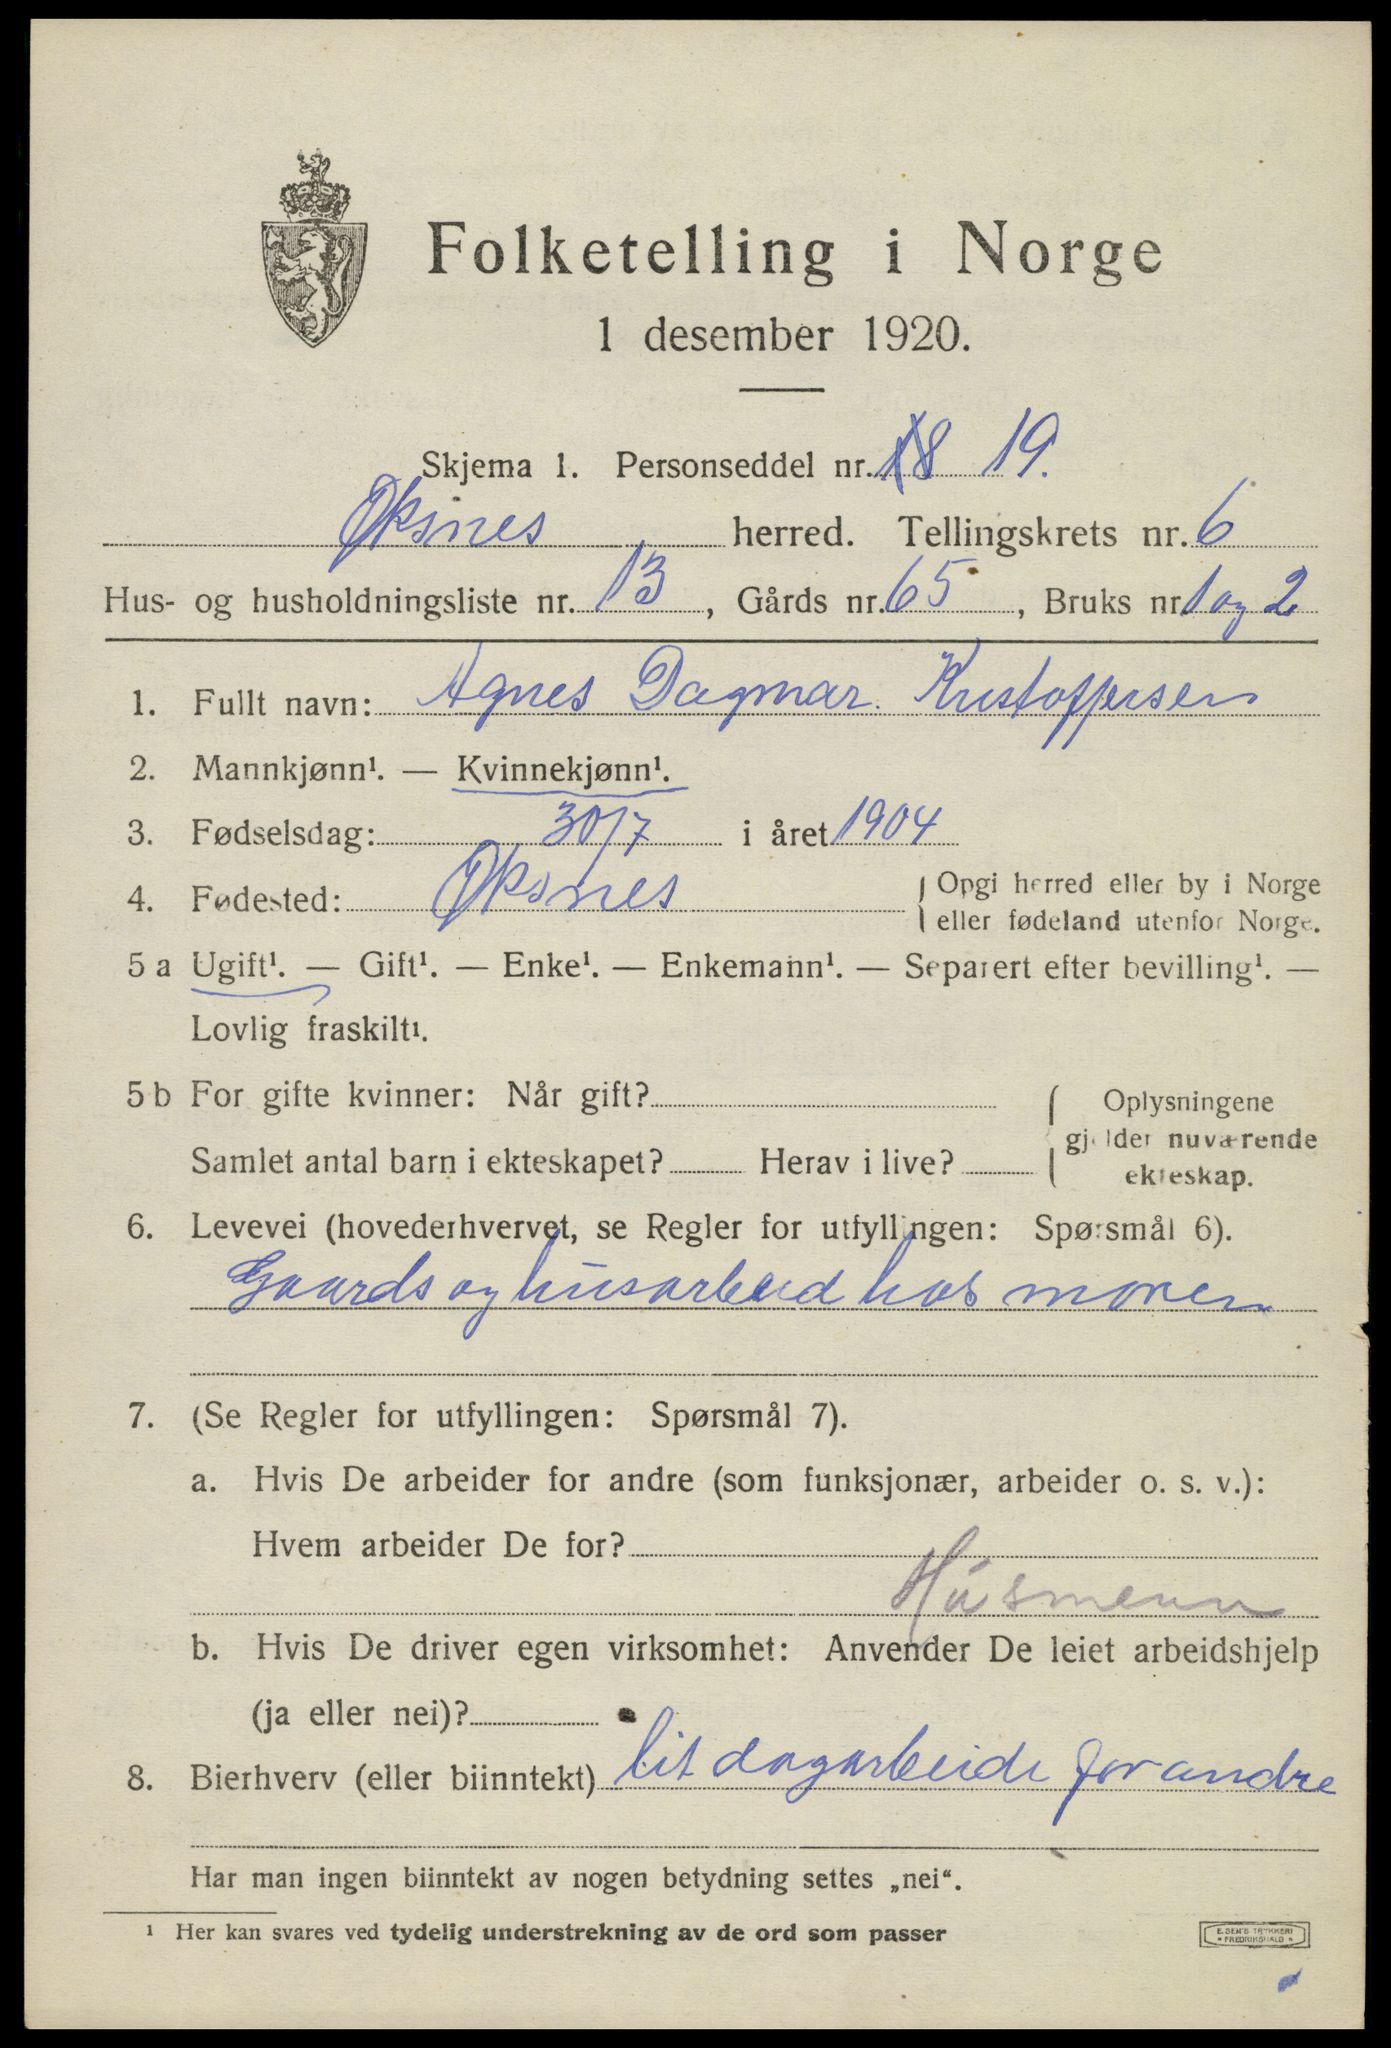 Folketelling i Norge
1 desember 1920.
Skjema 1. Personseddel nr. 18 19.
Øksnes herred. Tellingskrets nr. 6
Hus- og husholdningsliste nr. 13, Gårds nr. 65, Bruks nr 1 og 2
1. Fullt navn: Agnes Dagmar. Kristoffersen
2. Mannkjønn¹. — Kvinnekjønn¹.
3. Fødselsdag: 30/7 i året 1904
4. Fødested: Øksnes { Opgi herred eller by i Norge
eller fødeland utenfor Norge.
5 a Ugift¹. — Gift¹. — Enke¹. — Enkemann¹. — Separert efter bevilling¹. —
Lovlig fraskilt¹.
5 b For gifte kvinner: Når gift?
Samlet antal barn i ekteskapet? Herav i live?
{ Oplysningene
gjelder nuværende
ekteskap.
6. Levevei (hovederhvervet, se Regler for utfyllingen: Spørsmål 6).
Gaards og husarbeid hos moren
7. (Se Regler for utfyllingen: Spørsmål 7).
a. Hvis De arbeider for andre (som funksjonær, arbeider o. s. v.):
Hvem arbeider De for?
b. Hvis De driver egen virksomhet: Anvender De leiet arbeidshjelp
(ja eller nei)?
8. Bierhverv (eller biinntekt) lit dagarbeide for andre
Har man ingen biinntekt av nogen betydning settes „nei“.
¹ Her kan svares ved tydelig understrekning av de ord som passer
E. SEM'S TRYKKERI
FREDRIKSHALD